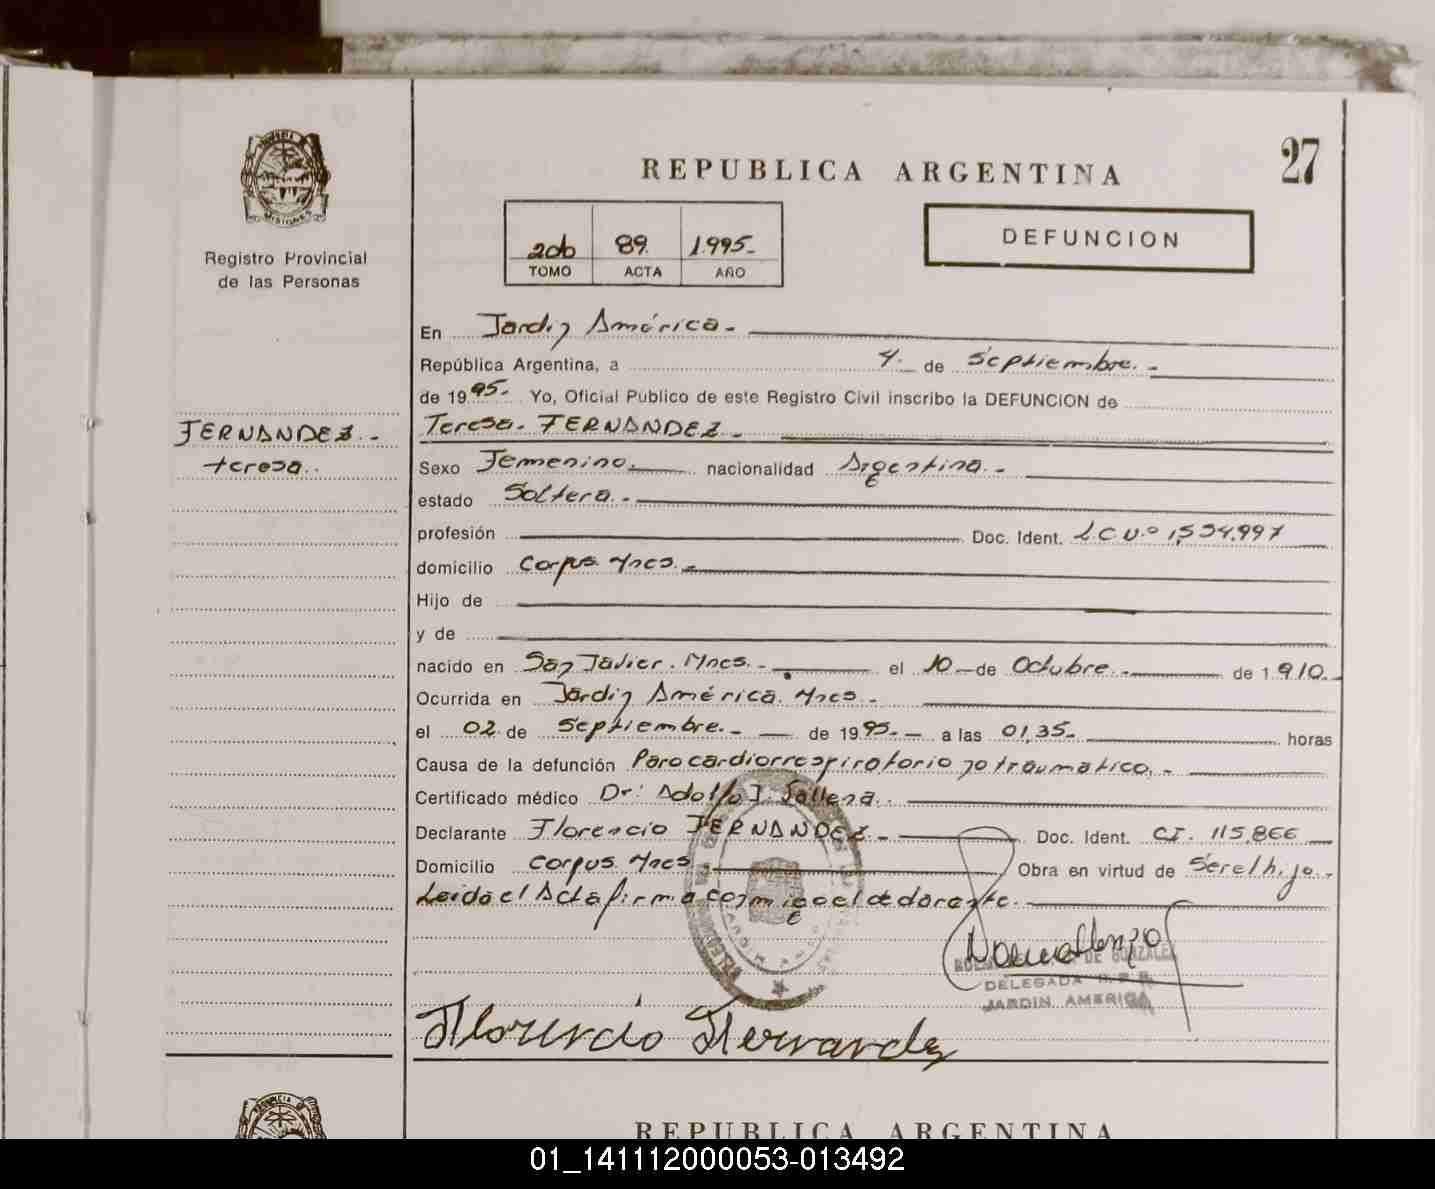 27
REPUBLICA ARGENTINA
DEFUNCION
Registro Provincial
de las Personas
2do 89. 1.995-
TOMO ACTA AÑO
FERNANDEZ.-
teresa.
En Jardin América.-
República Argentina, a 4. de Septiembre.-
de 1995.- Yo, Oficial Público de este Registro Civil inscribo la DEFUNCION de
Teresa. FERNANDEZ.-
Sexo Femenino. nacionalidad Argentina.-
estado Soltera.-
profesión Doc. Ident. L.C Nº 1,534.997
domicilio Corpus. Mnes.-
Hijo de
y de
nacido en San Javier. Mnes.- el 10 de Octubre.- de 1.910.
Ocurrida en Jardin América. Mnes.-
el 02 de Septiembre.- de 1995.- a las 01,35.- horas
Causa de la defunción Paro cardiorrespiratorio no traumatico.-
Certificado médico Dr: Adolfo J.
Declarante Florencio FERNANDEZ.- Doc. Ident. CI. 115.866
Domicilio Corpus. Mnes.- Obra en virtud de Ser el hijo.-
Leida el Acta firma conmigo el declarante.-
DE GONZALEZ
DELEGADA R.P.P.
JARDIN AMERICA
Florencio Fernandez
PROVINCIA DE
REPUBLICA ARGENTINA
01_141112000053-013492